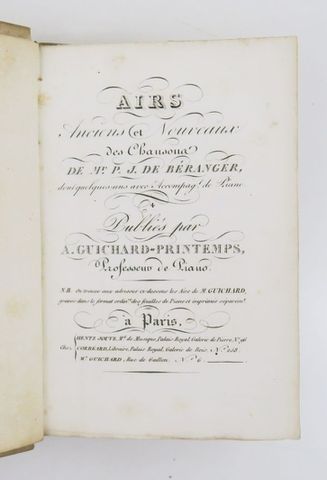 AIRS
Anciens et Nouveaux
des Chansons
DE Mr. P. J. DE BÉRANGER,
dont quelques uns avec Accompagt. de Piano
Publiés par
A. GUICHARD-PRINTEMPS,
Professeur de Piano.
N.B. On trouve aux adresses ci-dessous les Airs de M. GUICHARD,
gravés dans le format ordin. des feuilles de Piano et imprimés séparémt.
à Paris,
HENTZ-JOUVE, Md. de Musique, Palais Royal, Galerie de Pierre, No. 96
Chez CORRÉARD, Libraire, Palais Royal, Galerie de Bois, No. 258.
Mr. GUICHARD, Rue de Gaillon, No. 6.